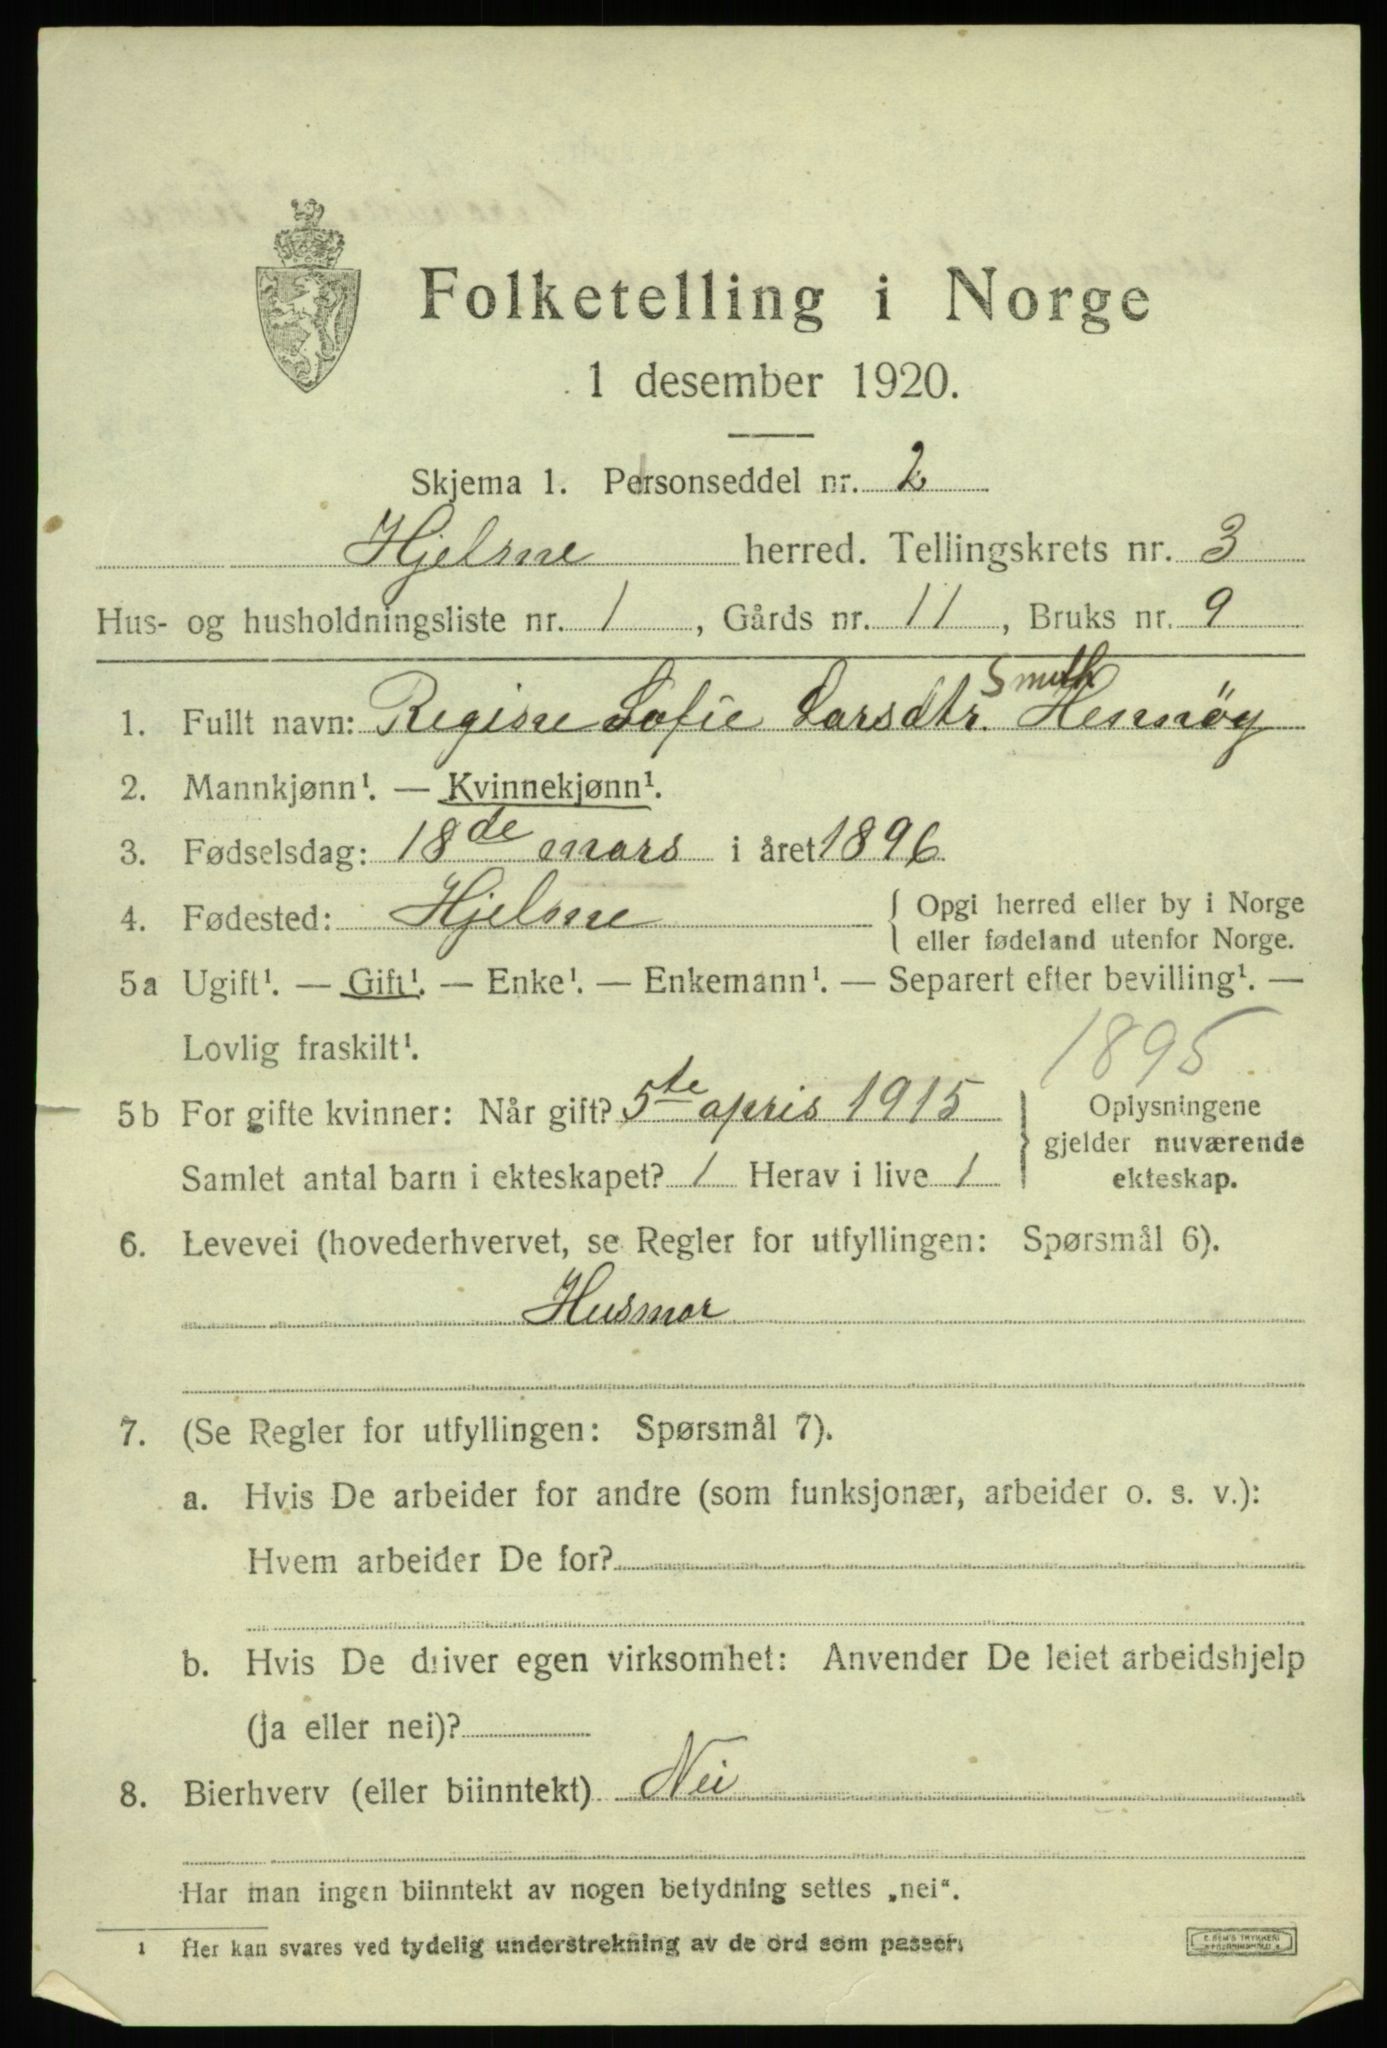 Folketelling i Norge
1 desember 1920.
Skjema 1. Personseddel nr. 2
Hjelme herred. Tellingskrets nr. 3
Hus- og husholdningsliste nr. 1, Gårds nr. 11, Bruks nr. 9
Smith
1. Fullt navn: Regine Sofie Larsdtr. Hennøy
2. Mannkjønn¹. — Kvinnekjønn¹.
3. Fødselsdag: 18de mars i året 1896
4. Fødested: Hjelme { Opgi herred eller by i Norge
eller fødeland utenfor Norge.
5a Ugift¹. — Gift¹. — Enke¹. — Enkemann¹. — Separert efter bevilling¹. —
Lovlig fraskilt¹.
1895
5b For gifte kvinner: Når gift? 5te apris 1915 } Oplysningene
gjelder nuværende
Samlet antal barn i ekteskapet? 1 Herav i live 1
ekteskap.
6. Levevei (hovederhvervet, se Regler for utfyllingen: Spørsmål 6).
Husmor
7. (Se Regler for utfyllingen: Spørsmål 7).
a. Hvis De arbeider for andre (som funksjonær, arbeider o. s. v.):
Hvem arbeider De for?
b. Hvis De driver egen virksomhet: Anvender De leiet arbeidshjelp
(ja eller nei)?
8. Bierhverv (eller biinntekt) Nei
Har man ingen biinntekt av nogen betydning settes „nei".
¹ Her kan svares ved tydelig understrekning av de ord som passer.